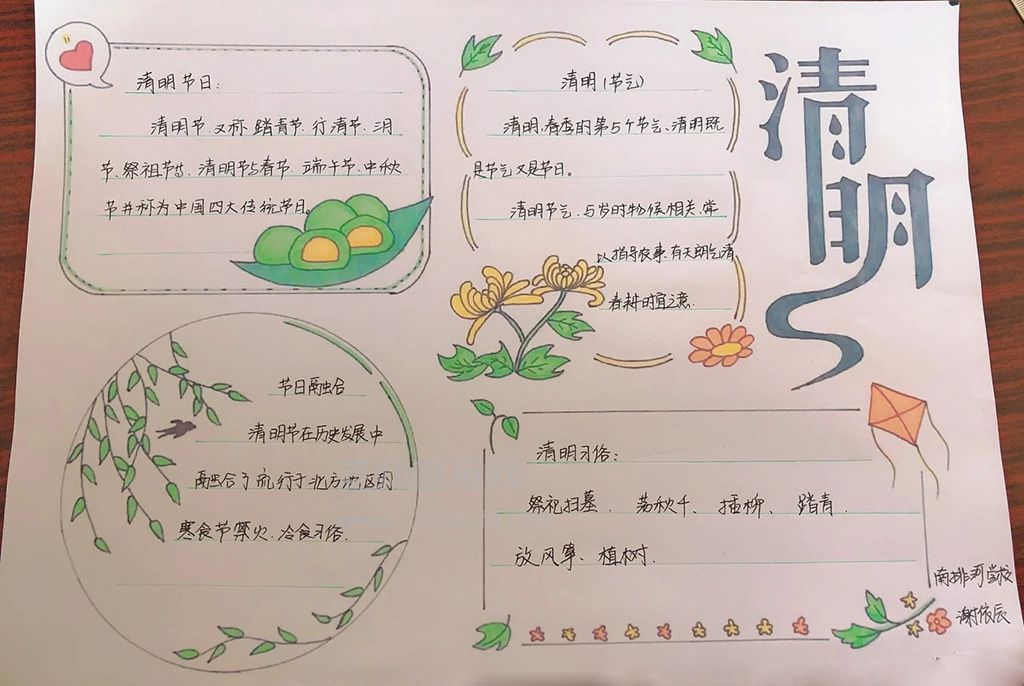 清明节日:
清明节.又称踏青节.行清节.三月
节.祭祖节等.清明节与春节.端午节.中秋
节并称为中国四大传统节日。
清明(节气)
清明,春季的第5个节气、清明既
是节气又是节日。
清明节气.与岁时物候相关.常
以指导农事.有天朗气清
春耕时宜之意.
清明
节日融合
清明节在历史发展中
融合了流行于北方地区的
寒食节禁火.冷食习俗.
清明习俗:
祭祀扫墓、荡秋千、插柳、踏青.
放风筝、植树.
南排河学校
谢依辰